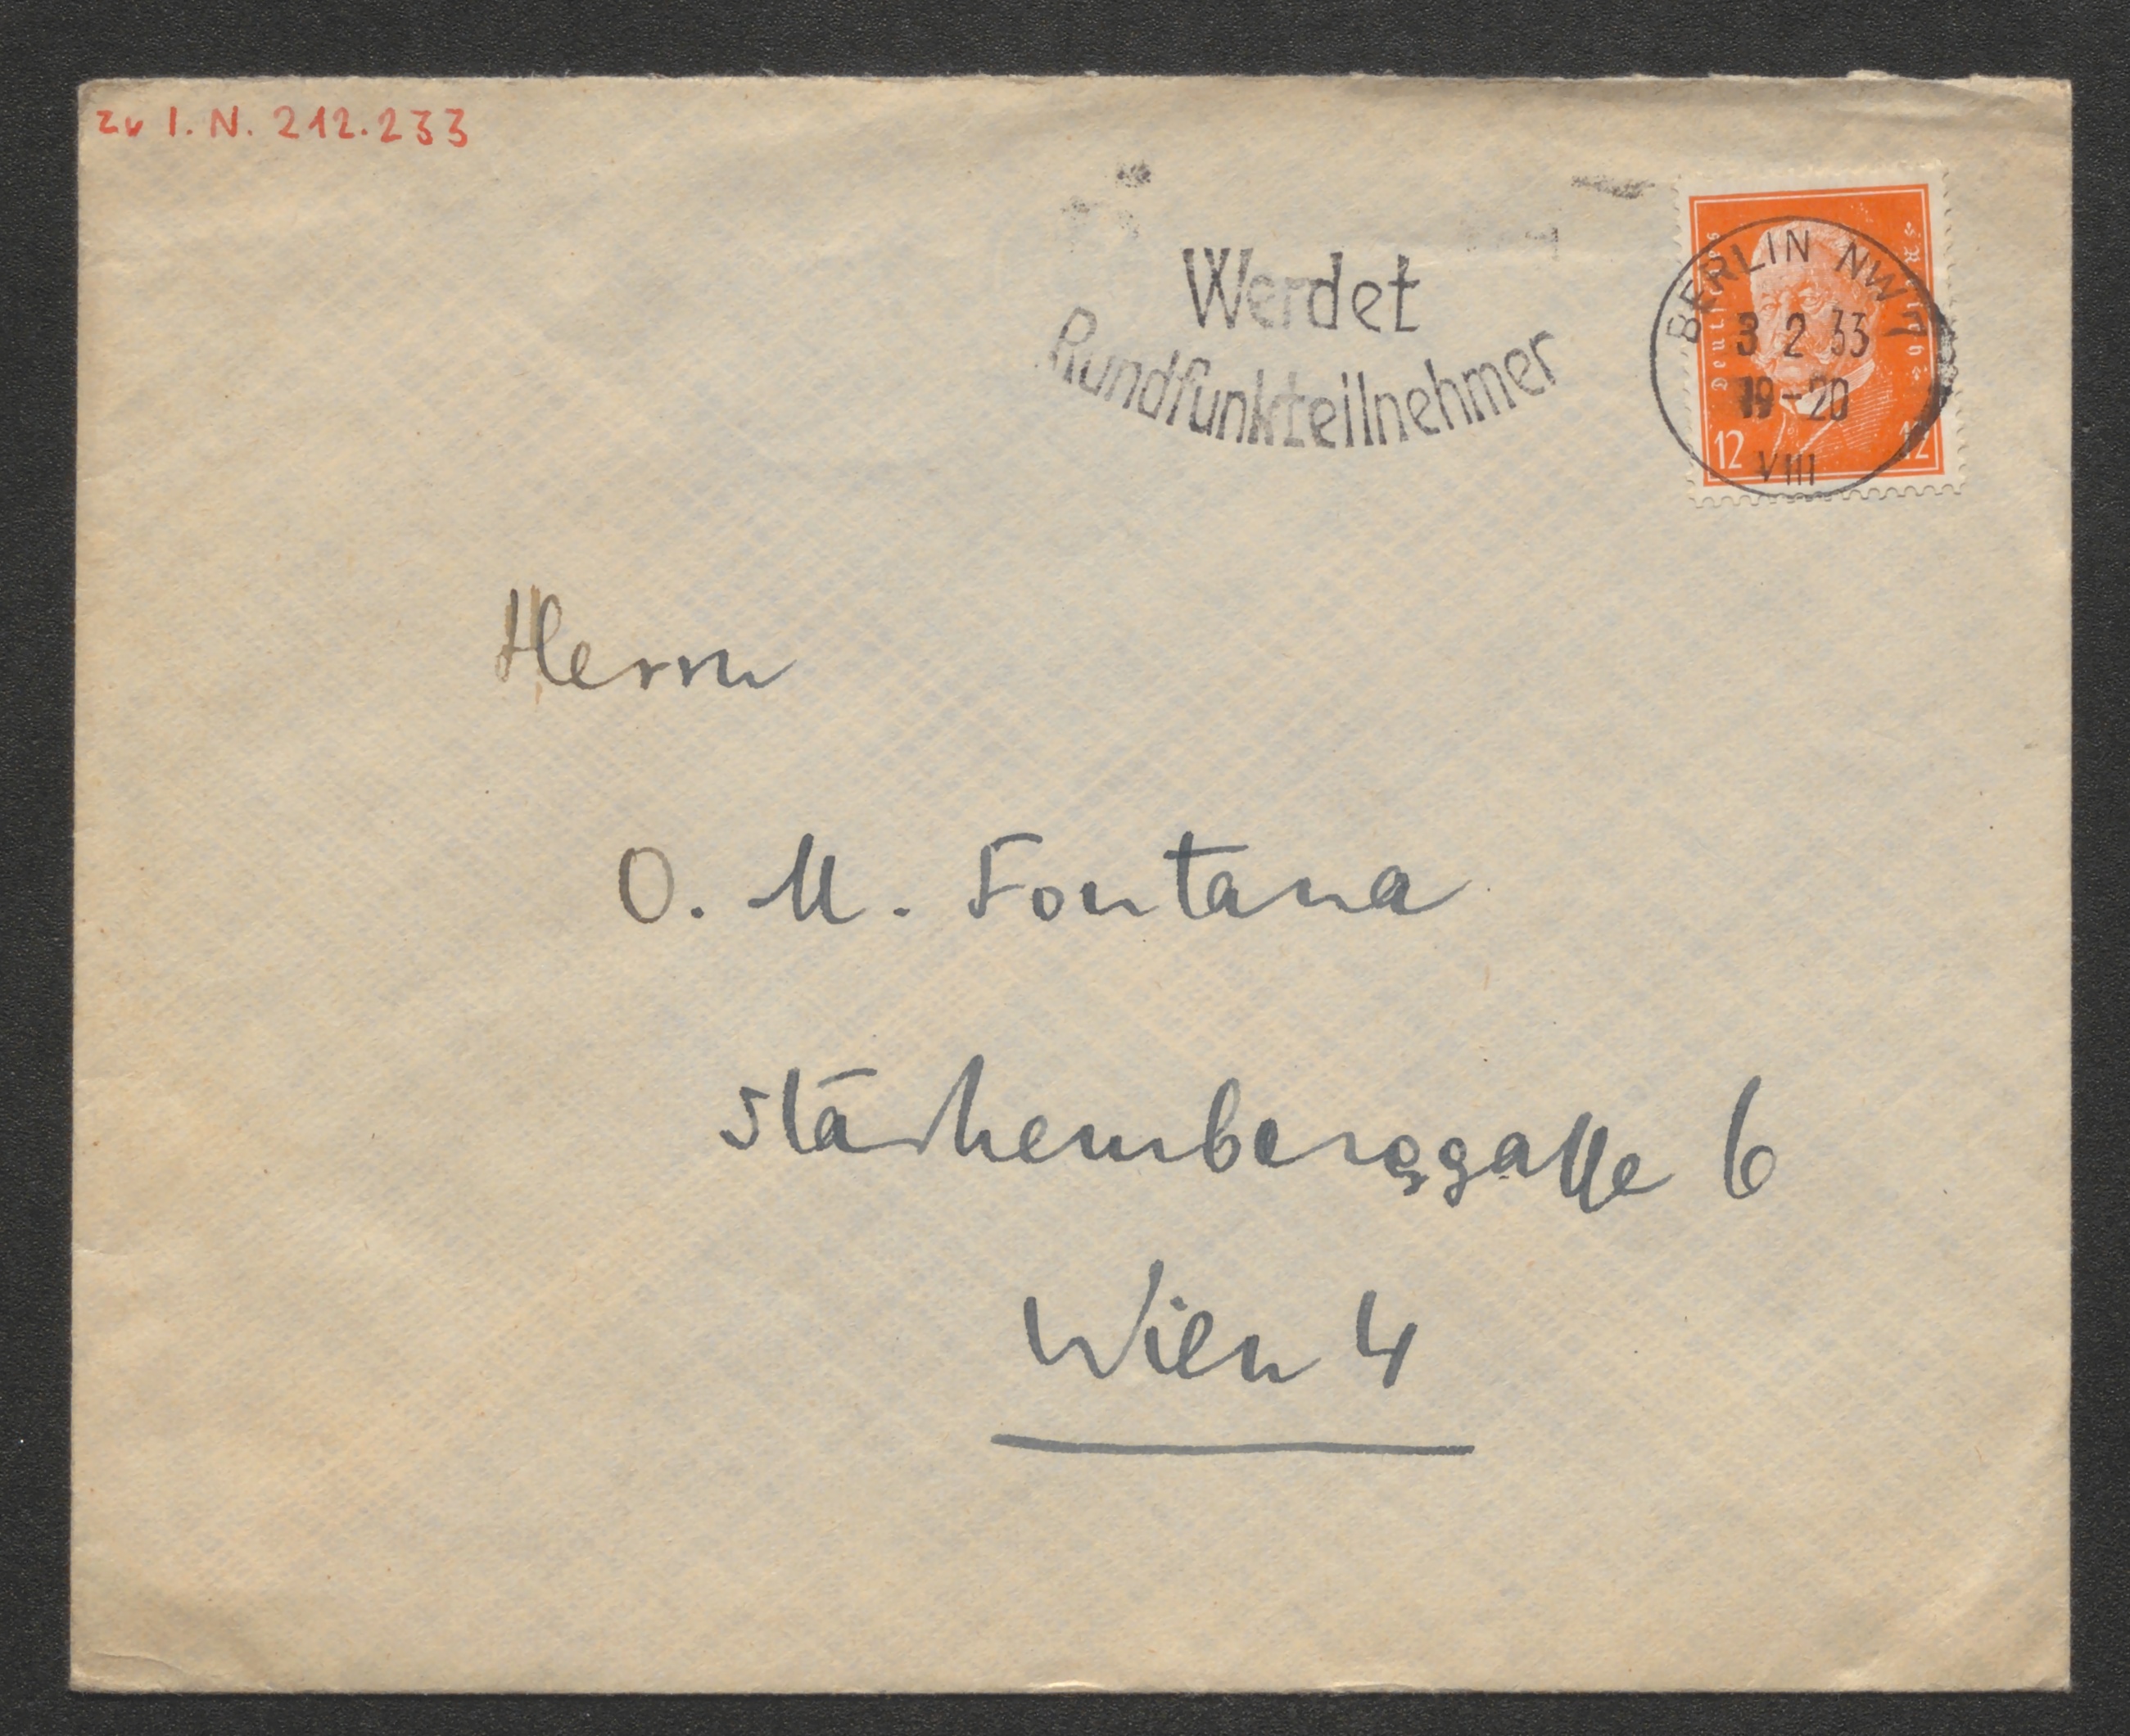 zu I. N. 212.233
Werdet
Rundfunkteilnehmer
Deutsches Reich
BERLIN NW 7
3 2 33
19-20
VIII
12 12
Herrn
O. M. Fontana
Starhemberggasse 6
Wien 4